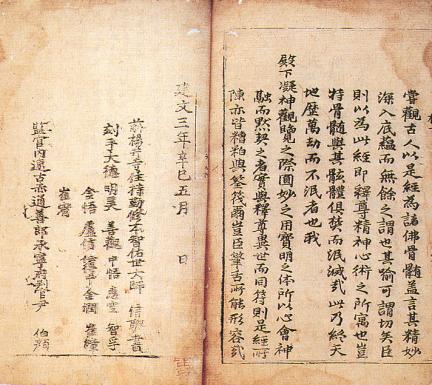 嘗觀古人以是經為諸佛骨髓盖言其精妙
深入底蘊而無餘之謂也其喻可謂切矣臣
則以為此經即釋尊精神心術之所寓也豈
特骨髓與其骸體俱焚而泯滅哉此乃終天
地歷萬劫而不泯者也我
殿下凝神觀覽之際圓妙之用寶明之体所以心會神
融而默契之者實與釋尊異世而同符則是經所
陳亦皆糟粕與筌筏爾豈臣擎古所能形容哉
建文三年辛巳五月 日
前楊 寺住持 修本智佑世大師 信聰 書
刻手大德 明昊 善觀 中悟 應空 智孚
金悟 盧信 金潤
崔
監官內 善郎承寧府 尹 伯